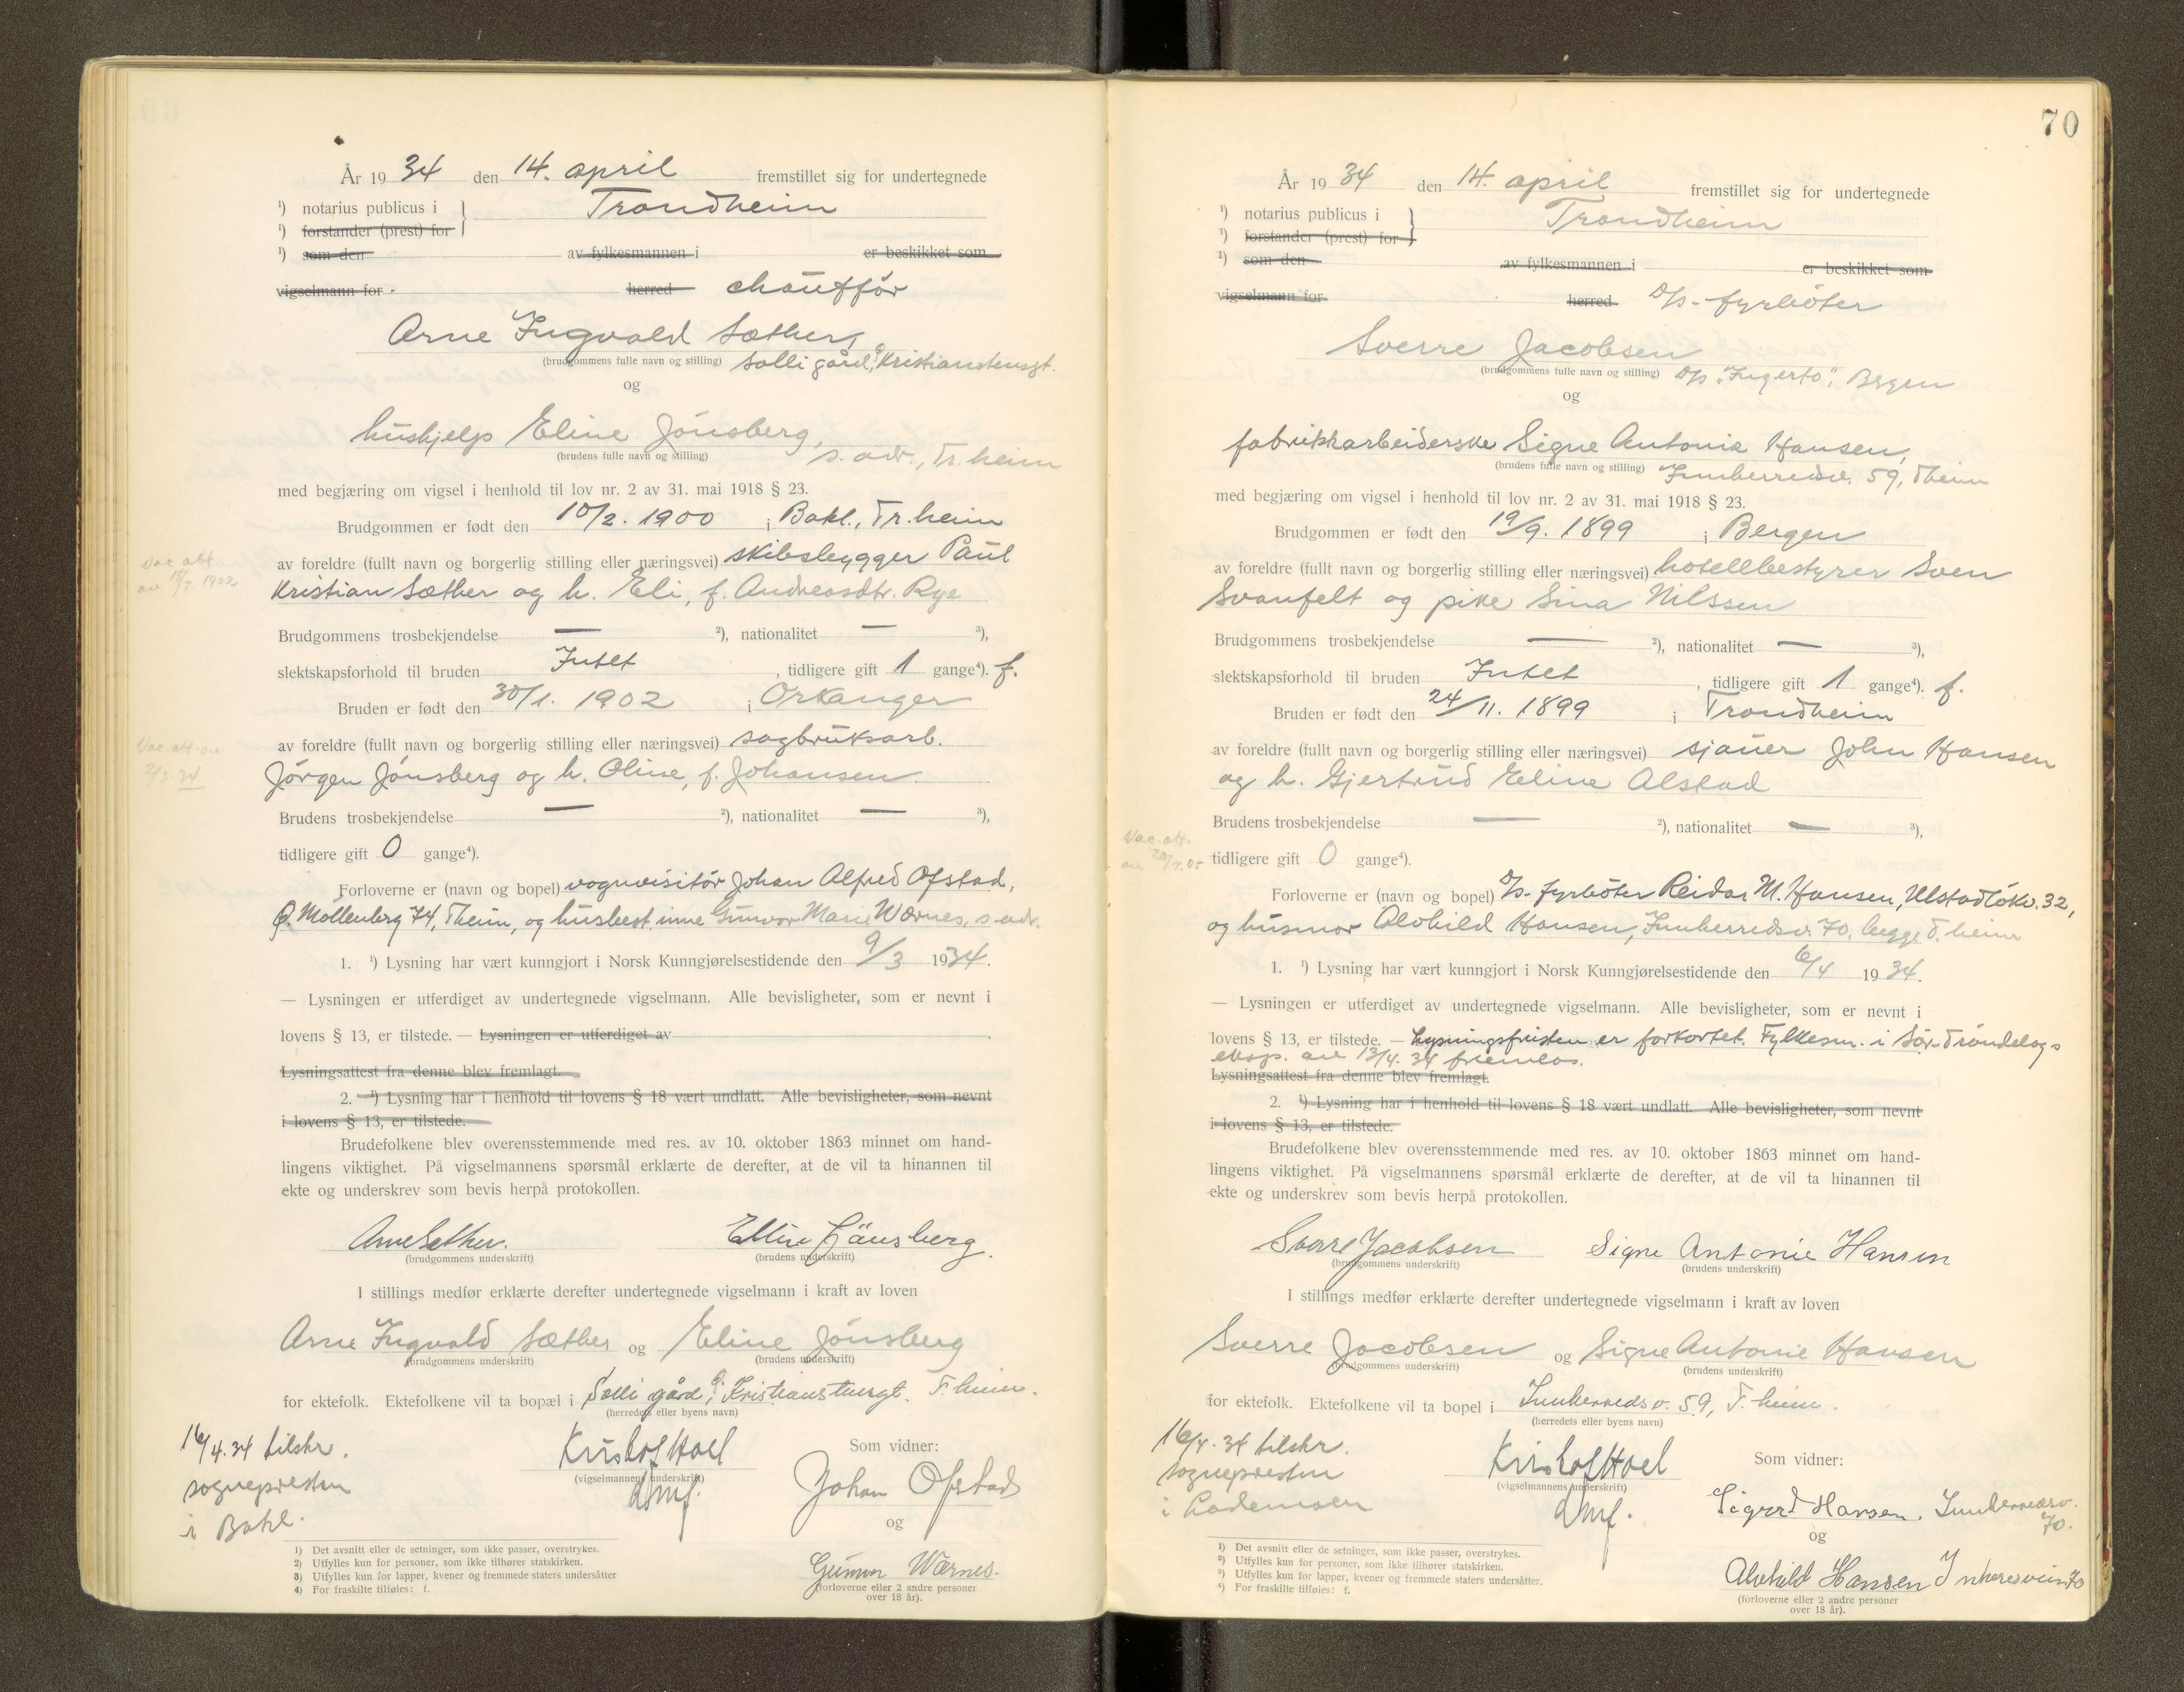 År 1934 den 14. april fremstillet sig for undertegnede
¹) notarius publicus i Trondheim
¹) forstander (prest) for
¹) som den av fylkesmannen i er beskikket som
vigselmann for herred chauffør
Arne Ingvald Sæther,
(brudgommens fulle navn og stilling) Solli gård, Kristianstensgt.
og
hushjelp Eline Jønsberg,
(brudens fulle navn og stilling) s. adr., Tr.heim
med begjæring om vigsel i henhold til lov nr. 2 av 31. mai 1918 § 23.
Brudgommen er født den 10/2. 1900 i Bakl., Tr.heim
av foreldre (fullt navn og borgerlig stilling eller næringsvei) skibsbygger Paul
Vac. att.
av 18/7 1902
Kristian Sæther og h. Eli, f. Andreasdtr. Rye
Brudgommens trosbekjendelse — ²), nationalitet — ³),
slektskapsforhold til bruden Intet, tidligere gift 1 gange⁴). f.
Bruden er født den 30/1. 1902 i Orkanger
av foreldre (fullt navn og borgerlig stilling eller næringsvei) sagbruksarb.
Vac. att. av
2/3 34
Jørgen Jønsberg og h. Oline, f. Johansen.
Brudens trosbekjendelse — ²), nationalitet — ³),
tidligere gift 0 gange⁴).
Forloverne er (navn og bopel) vognvisitør Johan Alfred Ofstad,
Ø. Møllenberg 74, Theim, og husbest.inne Gunvor Marie Wærnes, s. adr.
1. ¹) Lysning har vært kunngjort i Norsk Kunngjørelsestidende den 9/3 1934.
— Lysningen er utferdiget av undertegnede vigselmann. Alle bevisligheter, som er nevnt i
lovens § 13, er tilstede. — Lysningen er utferdiget av .
Lysningsattest fra denne blev fremlagt.
2. ¹) Lysning har i henhold til lovens § 18 vært undlatt. Alle bevisligheter, som nevnt
i lovens § 13, er tilstede.
Brudefolkene blev overensstemmende med res. av 10. oktober 1863 minnet om hand-
lingens viktighet. På vigselmannens spørsmål erklærte de derefter, at de vil ta hinannen til
ekte og underskrev som bevis herpå protokollen.
Arne Sæther. Elline Jönsberg.
(brudgommens underskrift) (brudens underskrift)
I stillings medfør erklærte derefter undertegnede vigselmann i kraft av loven
Arne Ingvald Sæther og Eline Jønsberg
(brudgommens underskrift) (brudens underskrift)
for ektefolk. Ektefolkene vil ta bopæl i Solli gård, Kristianstensgt. T.heim.
(herredets eller byens navn)
16/4. 34 tilskr.
sognepresten
i Bakl.
Kristof Hoel
(vigselmannens underskrift)
Som vidner:
Johan Ofstad
og
Gunvor Wærnes.
(forloverne eller 2 andre personer
over 18 år).
1) Det avsnitt eller de setninger, som ikke passer, overstrykes.
2) Utfylles kun for personer, som ikke tilhører statskirken.
3) Utfylles kun for lapper, kvener og fremmede staters undersåtter
4) For fraskilte tilføies: f.
70
År 1934 den 14. april fremstillet sig for undertegnede
¹) notarius publicus i Trondheim
¹) forstander (prest) for
¹) som den av fylkesmannen i er beskikket som
vigselmann for herred D/s-fyrbøter
Sverre Jacobsen
(brudgommens fulle navn og stilling) D/s "Ingerto", Bergen
og
fabrikkarbeiderske Signe Antonie Hansen,
(brudens fulle navn og stilling) Innherredsv. 59, Theim
med begjæring om vigsel i henhold til lov nr. 2 av 31. mai 1918 § 23.
Brudgommen er født den 19/9. 1899 i Bergen
av foreldre (fullt navn og borgerlig stilling eller næringsvei) hotellbestyrer Sven
Svanfelt og pike Sina Nilssen
Brudgommens trosbekjendelse — ²), nationalitet — ³),
slektskapsforhold til bruden Intet, tidligere gift 1 gange⁴). f.
Bruden er født den 24/11. 1899 i Trondheim
av foreldre (fullt navn og borgerlig stilling eller næringsvei) sjauer John Hansen
og h. Gjertrud Eline Alstad
Brudens trosbekjendelse — ²), nationalitet — ³),
Vac. att.
av 20/4.05
tidligere gift 0 gange⁴).
Forloverne er (navn og bopel) D/s-fyrbøter Reidar M. Hansen, Ulstadløkv. 32,
og husmor Alvhild Hansen, Innherredsv. 70, begge T.heim
1. ¹) Lysning har vært kunngjort i Norsk Kunngjørelsestidende den 6/4 1934.
— Lysningen er utferdiget av undertegnede vigselmann. Alle bevisligheter, som er nevnt i
lovens § 13, er tilstede. — Lysningsfristen er forkortet. Fylkesm. i Sør-Trøndelags
eksp. av 13/4. 34 fremlas.
Lysningsattest fra denne blev fremlagt.
2. ¹) Lysning har i henhold til lovens § 18 vært undlatt. Alle bevisligheter, som nevnt
i lovens § 13, er tilstede.
Brudefolkene blev overensstemmende med res. av 10. oktober 1863 minnet om hand-
lingens viktighet. På vigselmannens spørsmål erklærte de derefter, at de vil ta hinannen til
ekte og underskrev som bevis herpå protokollen.
Sverre Jacobsen Signe Antonie Hansen
(brudgommens underskrift) (brudens underskrift)
I stillings medfør erklærte derefter undertegnede vigselmann i kraft av loven
Sverre Jacobsen og Signe Antonie Hansen
(brudgommens underskrift) (brudens underskrift)
for ektefolk. Ektefolkene vil ta bopel i Innherredsv. 59, T.heim.
(herredets eller byens navn)
16/4. 34 tilskr.
sognepresten
i Lademoen
Kristof Hoel
(vigselmannens underskrift)
Som vidner:
Sigurd Hansen. Innherredsv.
70.
og
Alvhild Hansen Inheresveien 70
(forloverne eller 2 andre personer
over 18 år).
¹) Det avsnitt eller de setninger, som ikke passer, overstrykes.
²) Utfylles kun for personer, som ikke tilhører statskirken.
³) Utfylles kun for lapper, kvener og fremmede staters undersåtter.
⁴) For fraskilte tilføies: f.